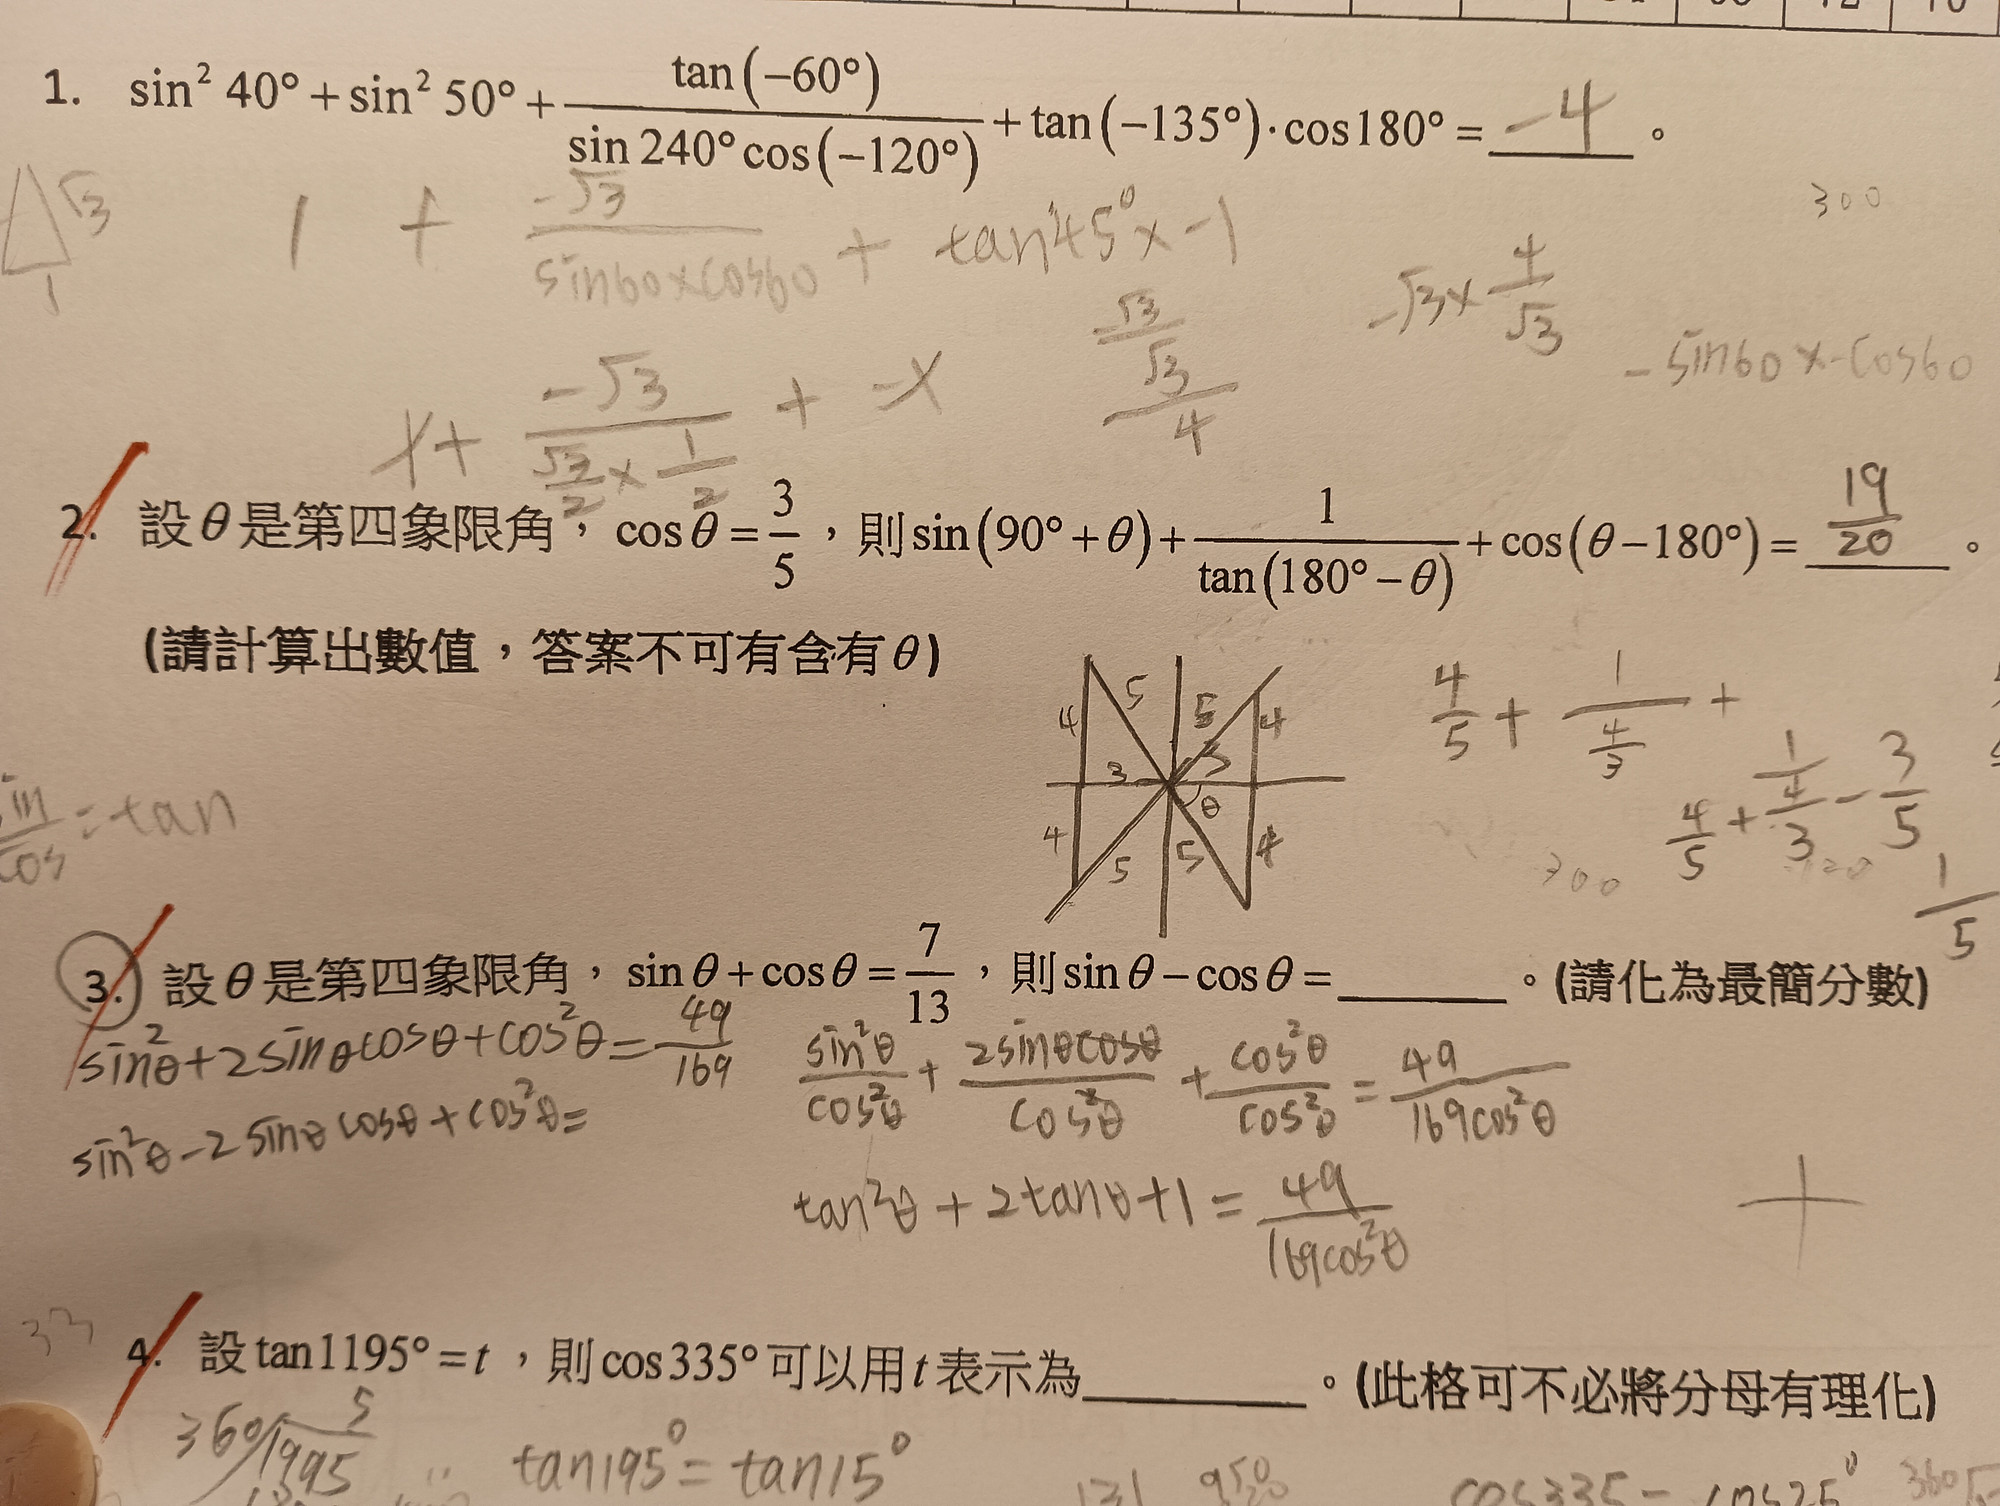 1. sin² 40° + sin² 50° + tan(−60°) / sin 240° cos(−120°) + tan(−135°)·cos180° = -4 。
√3 1 + -√3 / sin60×cos60 + tan45°×-1
300
1
-√3 × 4/√3
√3 / √3/4
-sin60×-cos60
1+ -√3 / √3/2 × 1/2 + -1
2. 設θ是第四象限角，cosθ = 3/5，則sin(90°+θ) + 1 / tan(180°−θ) + cos(θ−180°) = 19/20 。
(請計算出數值，答案不可有含有θ)
4 5 5 4
4/5 + 1 / 4/3 +
3 5 θ
4/5 + 1 / 4/3 - 3/5
sin/cos = tan
4 5 5 4
300
1/5
3. 設θ是第四象限角，sinθ + cosθ = 7/13，則sinθ − cosθ = ______ 。(請化為最簡分數)
sin²θ+2sinθcosθ+cos²θ = 49/169
sin²θ/cos²θ + 2sinθcosθ/cos²θ + cos²θ/cos²θ = 49/169cos²θ
sin²θ-2sinθcosθ+cos²θ=
tan²θ + 2tanθ+1 = 49/169cos²θ
33
4. 設tan1195° = t，則cos335°可以用t表示為______ 。(此格可不必將分母有理化)
5
360 1995
tan195° = tan15°
131 950
cos335 = cos25° 360